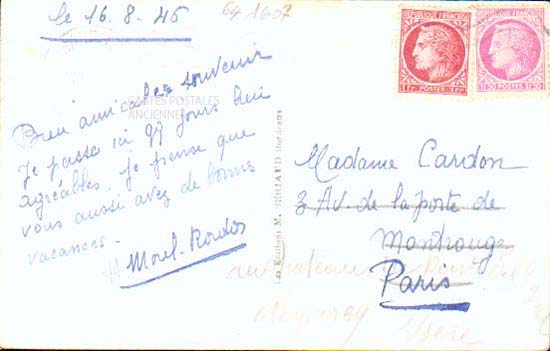 le 16.8.46
64 1607
Bien amicales souvenir
Je passe ici qq jours bien
agréables, je pense que
vous aussi avez de bonnes
vacances.
Morel-Rordos
CARTES POSTALES
ANCIENNES
Les Editions M. Bordeaux
REPUBLIQUE FRANÇAISE
1Fr POSTES 1Fr
REPUBLIQUE FRANÇAISE
1F50 POSTES 1F50
Madame Cardon
3 Av. de la porte de
Montrouge
Paris
Isère